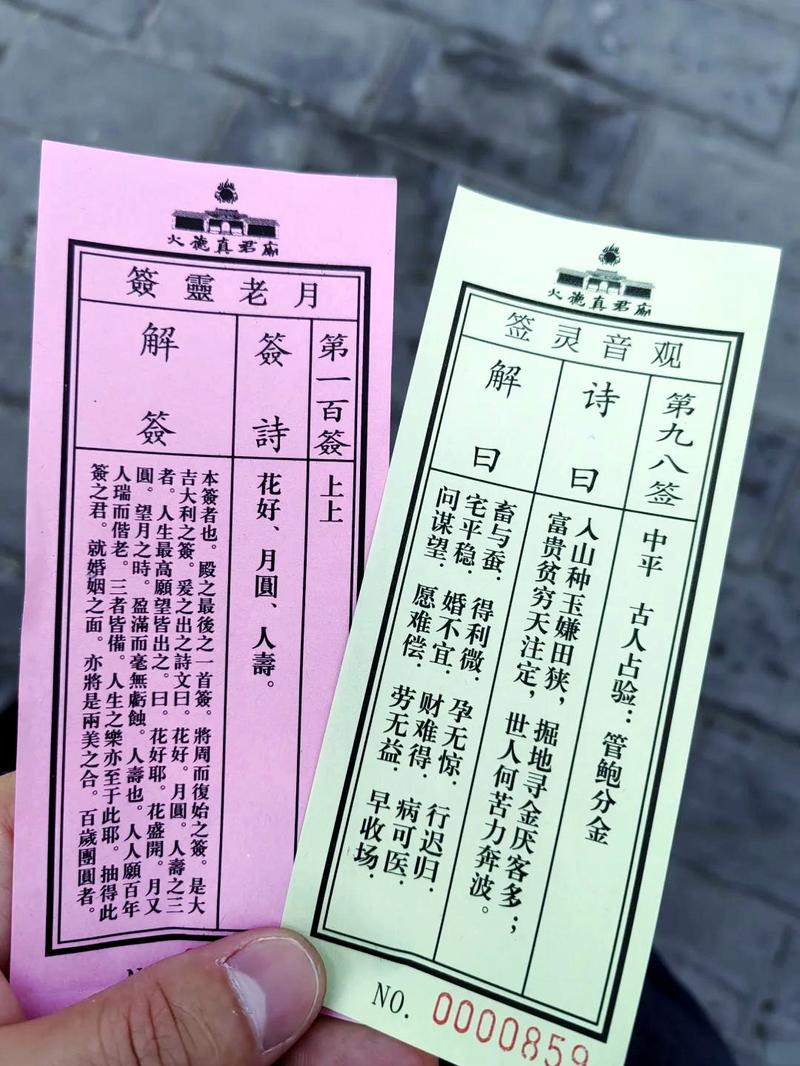 火德真君廟
月老靈簽
第一百簽
上上
簽詩
花好、月圓、人壽。
解簽
本簽者也。殿之最後之一首簽。將周而復始之簽。是大
吉大利之簽。爰之出之詩文曰。花好。月圓。人壽之三
者。人生最高願望皆出之。曰。花好耶。花盛開。月又
圓。望月之時。盈滿而毫無虧蝕。人壽也。人人願百年
人瑞而偕老。三者皆備。人生之樂亦至于此耶。抽得此
簽之君。就婚姻之面。亦將是兩美之合。百歲團圓者。
火德真君廟
观音灵签
第九八签
中平 古人占验：管鲍分金
诗曰
入山种玉嫌田狭，掘地寻金厌客多；
富贵贫穷天注定，世人何苦力奔波。
解曰
畜与蚕．得利微．孕无惊．行迟归．
宅平稳．婚不宜．财难得．病可医．
问谋望．愿难偿．劳无益．早收场．
NO. 0000859